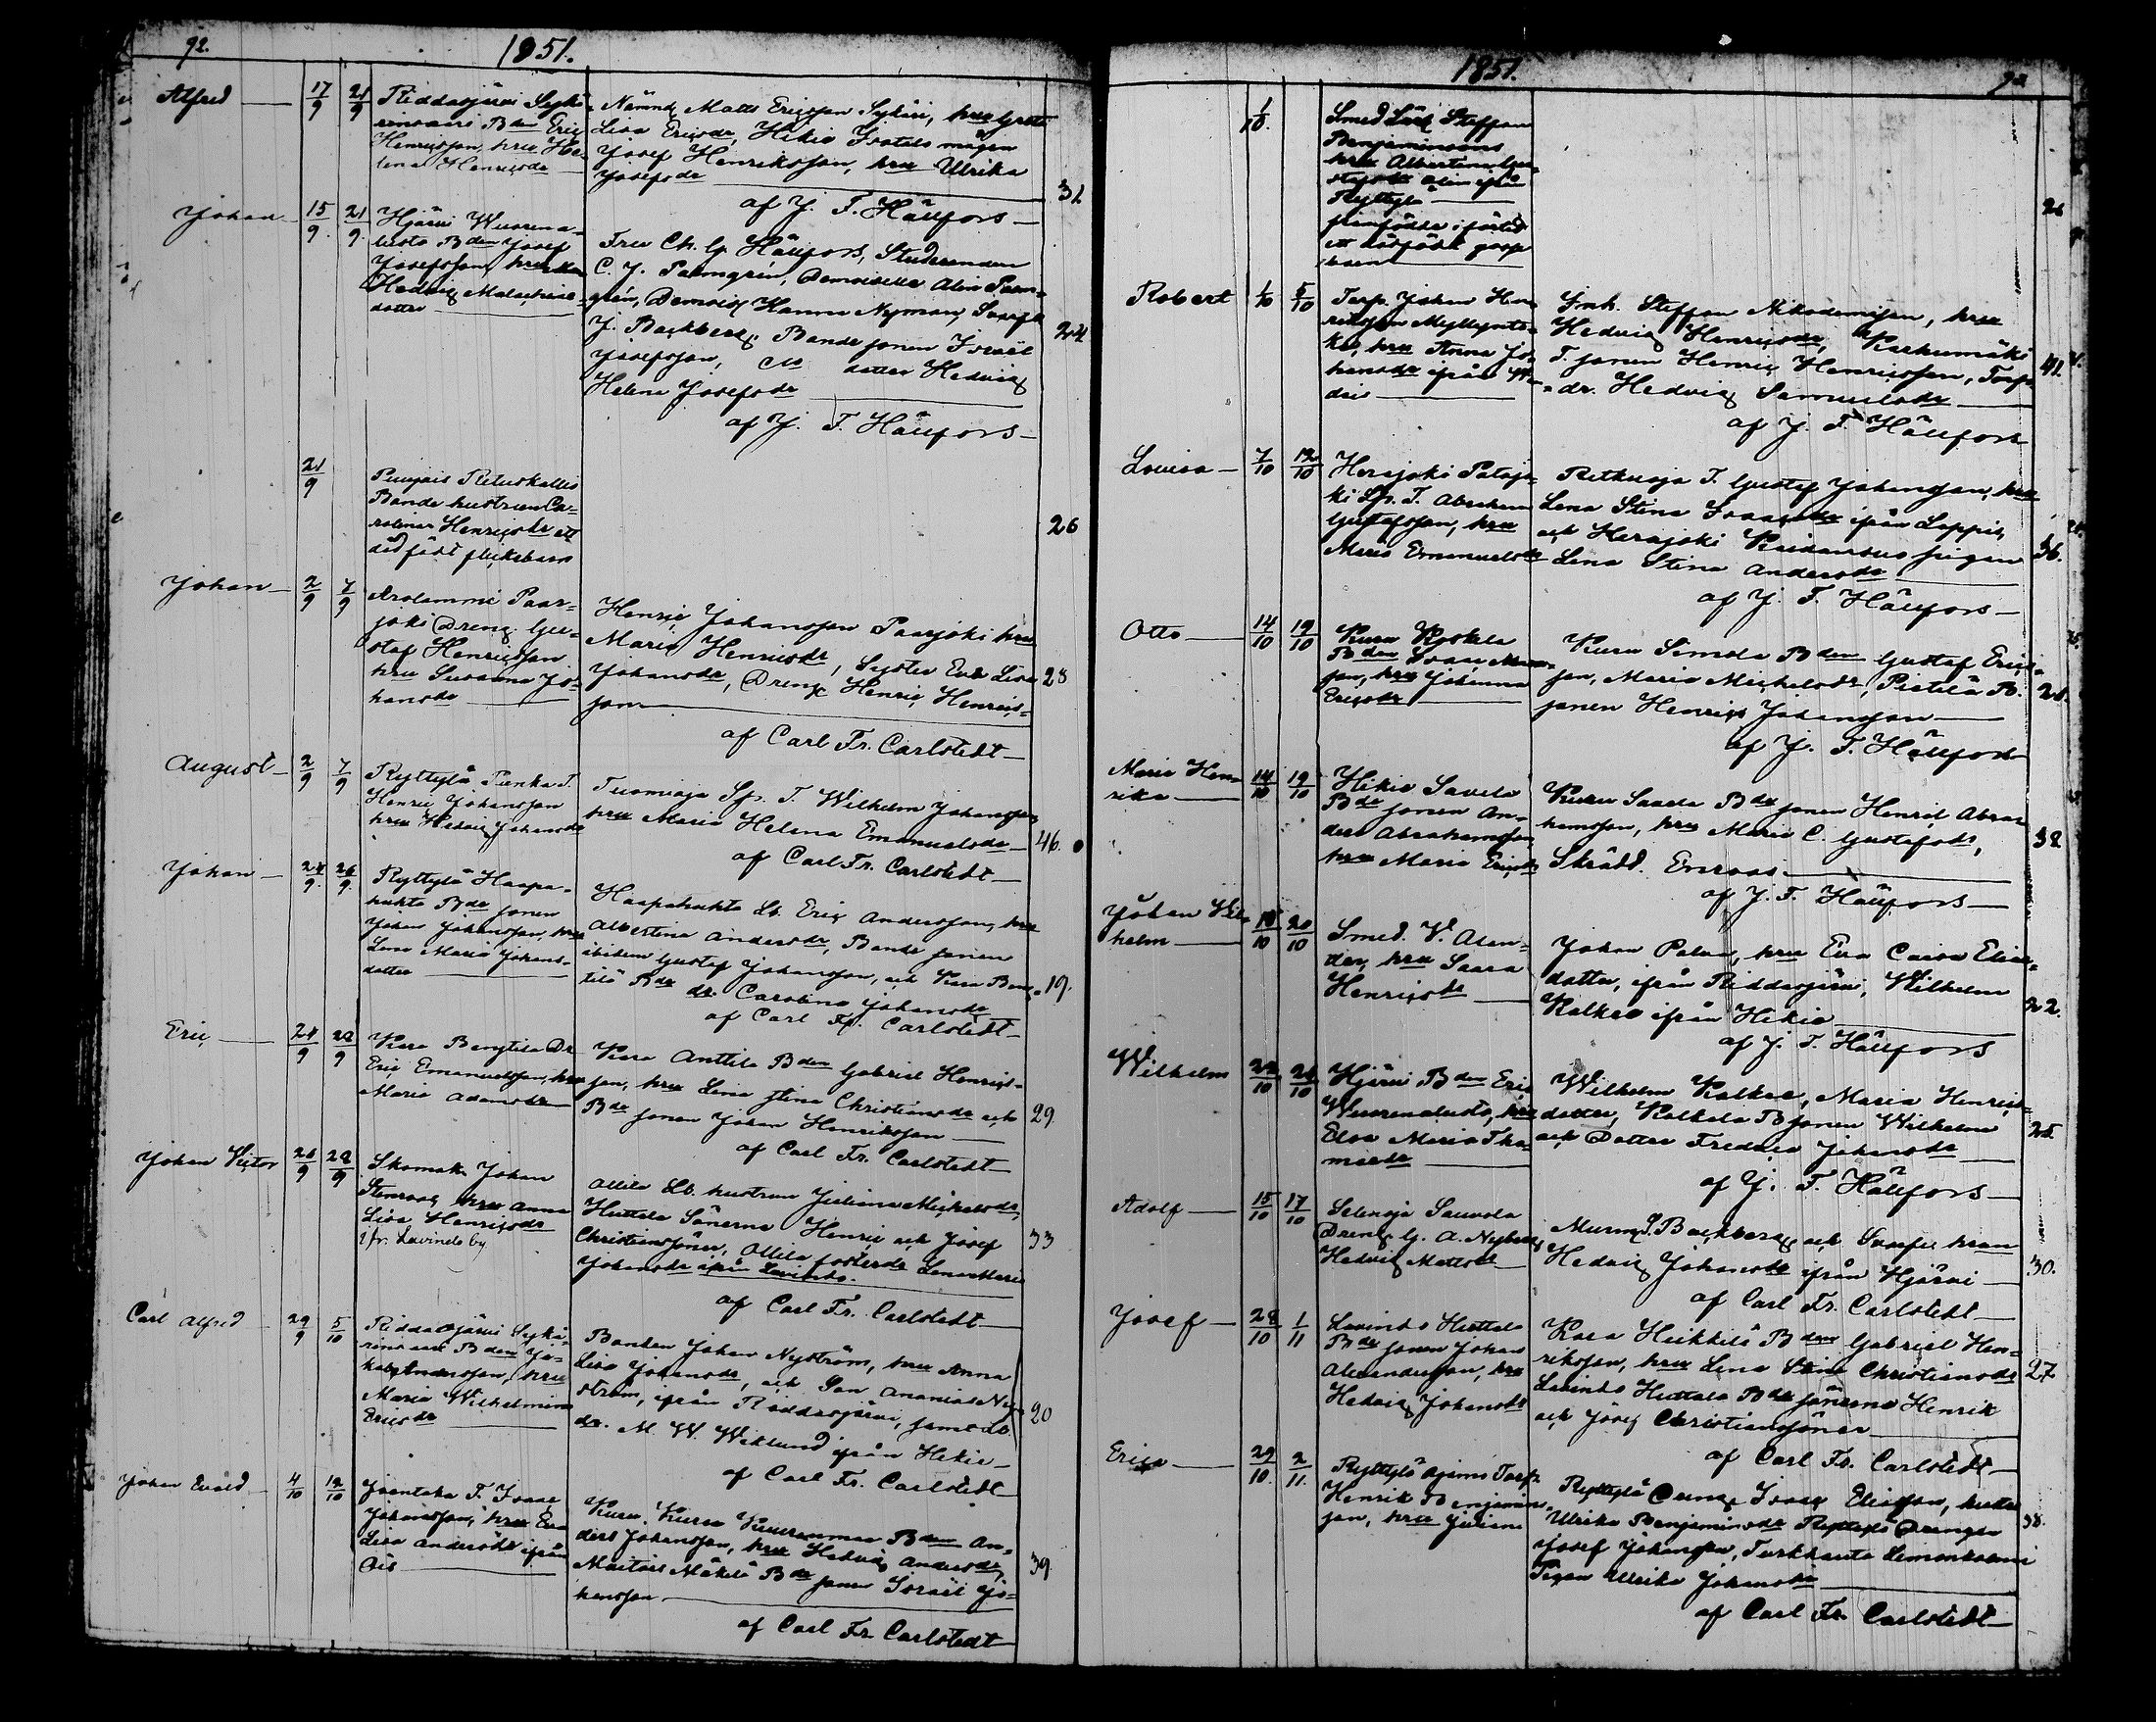 92.
1851.
Alfred
17/9 21/9
Riddasjärvi Sykä-
rinvaari Bden Eric
Henricsson, hru He-
lena Henricsdr
Nämnd. Matts Ericsson Sykäri, hru Greta
Lisa Ericsdr, Hikiä mågen
Josef Henriksson, hru Ulrika
Josefsdr
31
af J. F. Hällfors
Johan
15/9 21/9
Hjärvi Wuorena-
lusta Bden Josef
Josefsson, hru
Hedvig
dotter
Fru Ch. G. Hällfors, Studeranden
C. J. Palmgrén, Demoiselle Alin Palm-
grén, Demois. Hanna Nyman,
J. Backberg, Bonde sonen Israël
Josefsson, dotter Hedvig
Helena Josefsdr
24
af J. F. Hällfors
21/9
Bonde hustrun Ca-
rolina Henricsdr ett
dödfödt flickebarn
26
Johan
2/9 7/9
Arolammi Paar-
joki Dreng Gu-
staf Henricsson
hru Susanna Jo-
hansdr
Henric Johansson Paarjoki hru
Maria Henricsdr, Syster Eva Lisa
Johansdr, Dreng Henric Henrics-
son
28
af Carl Fr. Carlstedt
August
2/9 7/9
Ryttylä Punka T.
Henric Johansson
hru Hedvig Johansdr
Tuomioja Sp. T. Wilhelm Johansson
hru Maria Helena Emanuelsdr
46.
af Carl Fr. Carlstedt
Johan
24/9 26/9
Ryttylä Haapa-
huhta Bde sonen
Johan Johansson, hru
Lena Maria Johans-
dotter
Haapahuhta Eric Andersson, hru
Albertina Andersdr, Bonde sonen
ibidem Gustaf Johansson, och Kara Beng-
tilä Bde dr. Carolina Johansdr
19.
af Carl Fr. Carlstedt
Eric
24/9 28/9
Kara Bengtilä Dr
Eric Emanuelsson, hru
Maria Adamsdr
Kara Anttila Bden Gabriel Henrics-
son, hru Lena Stina Christiansdr och
Bde sonen Johan Henriksson
29.
af Carl Fr. Carlstedt
Johan Victor
26/9 28/9
Skomak. Johan
Stenroos, hru Anna
Lisa Henricsdr
fr. Lavinto by
Ollila hustrun Juliana Michelsdr,
Huttala Sönerna Henric och Josef
Christianssöner, Ollila fosterdr Lena Maria
Johansdr ifrån Lavinto.
33
af Carl Fr. Carlstedt
Carl Alfred
29/9 5/10
Riddasjärvi Sykä-
rinvaari Bden Ja-
kob Andersson, hru
Maria Wilhelmina
Ericsdr
Bonden Johan Nyström, hru Anna
Lisa Johansdr, och Son Ananias Ny-
ström, ifrån Riddasjärvi, samt
dr. M. W. Wiklund ifrån Hikiä
20
af Carl Fr. Carlstedt
Johan Evald
4/10 12/10
Joentaka T. Isaac
Johansson, hru Eva
Lisa Andersdr ifrån
Ois
Kuru Bden An-
ders Johansson, hru Hedvig Andersdr,
Mäkelä Bde sonen Israël Jo-
hansson
39.
af Carl Fr. Carlstedt
1851.
93
1/10.
Smed Steffan
Benjaminsons
hru Albertina Gu-
stafsdr ifrån
Ryttylä
framfödde i förtid
ett dödfödt goss-
barn
26
Robert
1/10 5/10
Torp. Johan Hen-
riksson Myllynto-
ka, hru Anna Jo-
hansdr ifrån
Inh. Steffan Nikodemisson, hru
Hedvig Henricsdr, Karhumäki
T. sonen Henric Henricsson, Torp.
dr. Hedvig Samuelsdr
41.
af J. F. Hällfors
Lovisa
7/10 12/10
Herajoki Patajo-
ki Sp. T. Abraham
Gustafsson, hru
Maria Emanuelsdr
Retkuoja T. Gustaf Johansson, hru
Lena Stina Isaacsdr ifrån Loppis,
och Herajoki pigan
Lena Stina Andersdr
36.
af J. F. Hällfors
Otto
14/10 19/10
Kuru Koskela
Bden Isaac
son, hru Johanna
Ericsdr
Kuru Simola Bden Gustaf Erics-
son, Maria Michelsdr, Pietilä B.
sonen Henric Johansson
21.
af J. F. Hällfors
Maria Hen-
rika
14/10 19/10
Hikiä Savela
Bde sonen An-
ders Abrahamsson
hru Maria Ericsdr
Kuru Savela Bde sonen Henric Abra-
hamsson, hru Maria C. Gustafsdr,
Skrädd. Enroos
38
af J. F. Hällfors
Johan Wil-
helm
18/10 20/10
Smed. V. Alen-
der, hru Saara
Henricsdr
Johan Palin, hru Eva Caisa Elias-
dotter, ifrån Riddasjärvi, Wilhelm
Kalkas ifrån Hikiä
22.
af J. F. Hällfors
Wilhelm
22/10 26/10
Hjärvi Bden Eric
Wuorenalusta, hru
Elsa Maria Tho-
masdr
Wilhelm Kalkas, Maria Henrics-
dotter, Kalkela B sonen Wilhelm
och Dotter Fredrica Johansdr
25.
af J. F. Hällfors
Adolf
15/10 17/10
Selänoja Sauvola
Dreng G. A. Nyberg
Hedvig Mattsdr
Murm. J. Backberg och hran
Hedvig Johansdr ifrån Hjärvi
30.
af Carl Fr. Carlstedt
Josef
28/10 1/11
Lavinto Huttala
Bde sonen Johan
Alexandersson, hru
Hedvig Johansdr
Kara Heikkilä Bden Gabriel Hen-
riksson, hru Lena Stina Christiansdr
Lavinto Huttala Bde sönerna Henrik
och Josef Christianssöner
27.
af Carl Fr. Carlstedt
Erica
29/10. 2/11.
Ryttylä Torp.
Henrik Benjamins-
son, hru Juliana
Ryttylä Dreng Isaac Eliasson, hustru
Ulrika Benjaminsdr Ryttylä Drengen
Josef Johansson, Turkhauta
Pigan Ulrika Johansdr
38.
af Carl Fr. Carlstedt